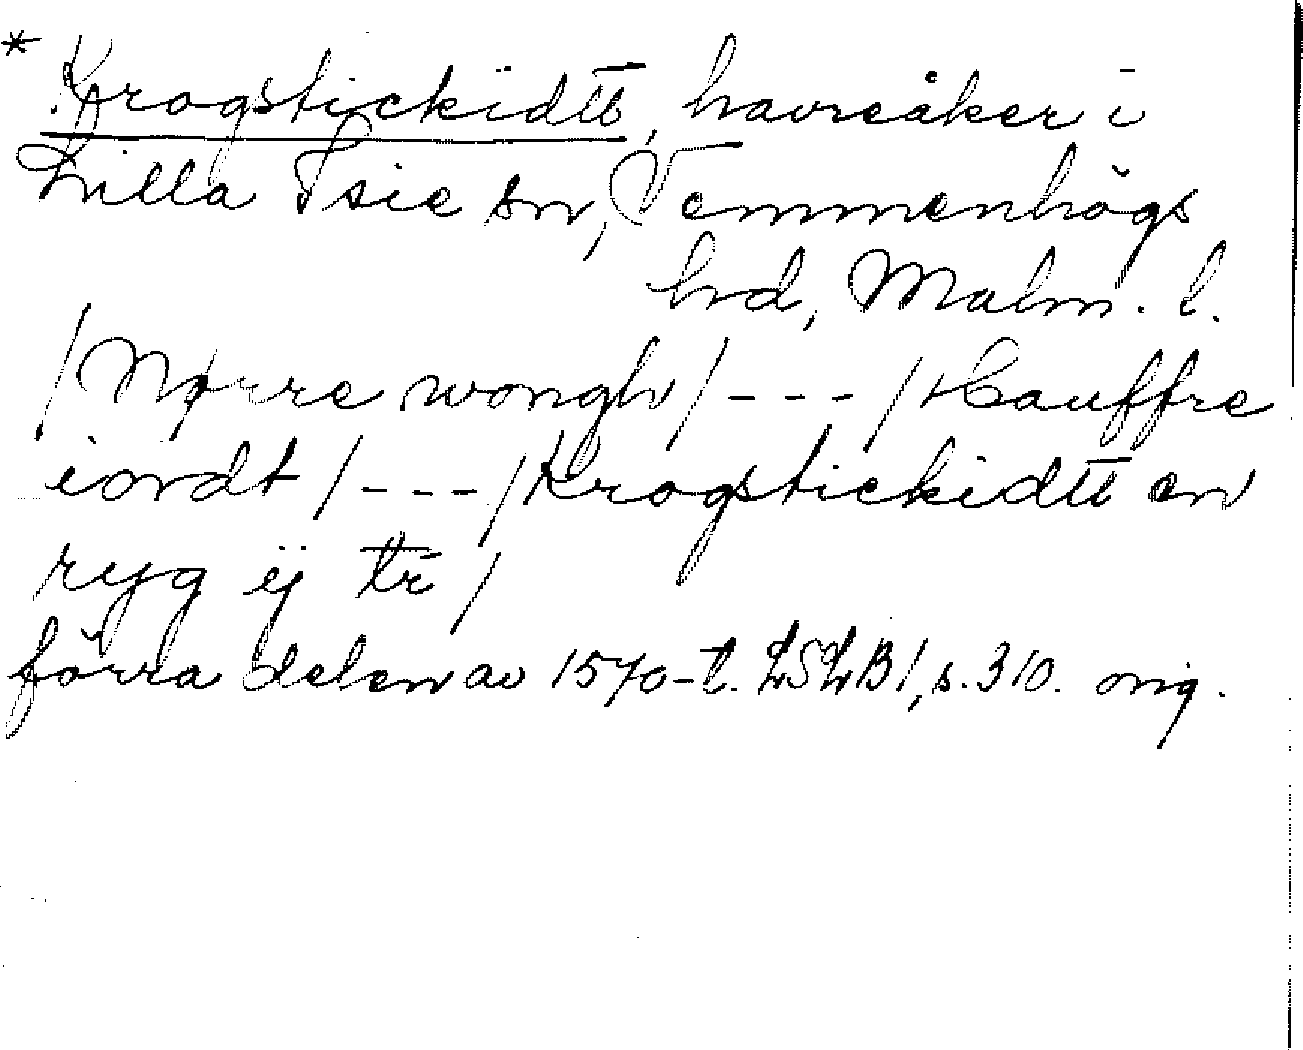 * Krogstickidtt, havreåker i
Lilla Isie sn, Vemmenhögs
hd, Malm. l.
/Nørre wongh/ - - - /Hauffre
iordt / - - - /Krogstickidtt en
ryg ij tr /
förra delen av 1570-t. LSLB 1, s. 310. orig.